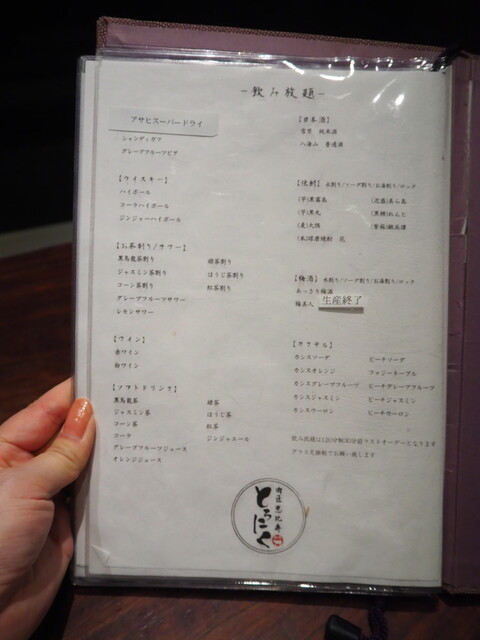 -飲み放題-
アサヒスーパードライ
シャンディガフ
グレープフルーツビア
【ウイスキー】
ハイボール
コーラハイボール
ジンジャーハイボール
【お茶割り/サワー】
黒烏龍茶割り 緑茶割り
ジャスミン茶割り ほうじ茶割り
コーン茶割り 紅茶割り
グレープフルーツサワー
レモンサワー
【ワイン】
赤ワイン
白ワイン
【ソフトドリンク】
黒烏龍茶 緑茶
ジャスミン茶 ほうじ茶
コーン茶 紅茶
コーラ ジンジャエール
グレープフルーツジュース
オレンジジュース
【日本酒】
純米酒
八海山 普通酒
【焼酎】 水割り/ソーダ割り/お湯割り/ロック
(芋)黒霧島 (泡盛)美ら島
(芋)黒丸 (黒糖)れんと
(麦)大隅 (紫蘇)鍛高譚
(米)球磨焼酎 花
【梅酒】 水割り/ソーダ割り/お湯割り/ロック
あっさり梅酒
梅美人 生産終了
【カクテル】
カシスソーダ ピーチソーダ
カシスオレンジ ファジーネーブル
カシスグレープフルーツ ピーチグレープフルーツ
カシスジャスミン ピーチジャスミン
カシスウーロン ピーチウーロン
飲み放題は120分制30分前ラストオーダーとなります
グラス交換制でお願い致します
肉匠恵比寿
とろにく